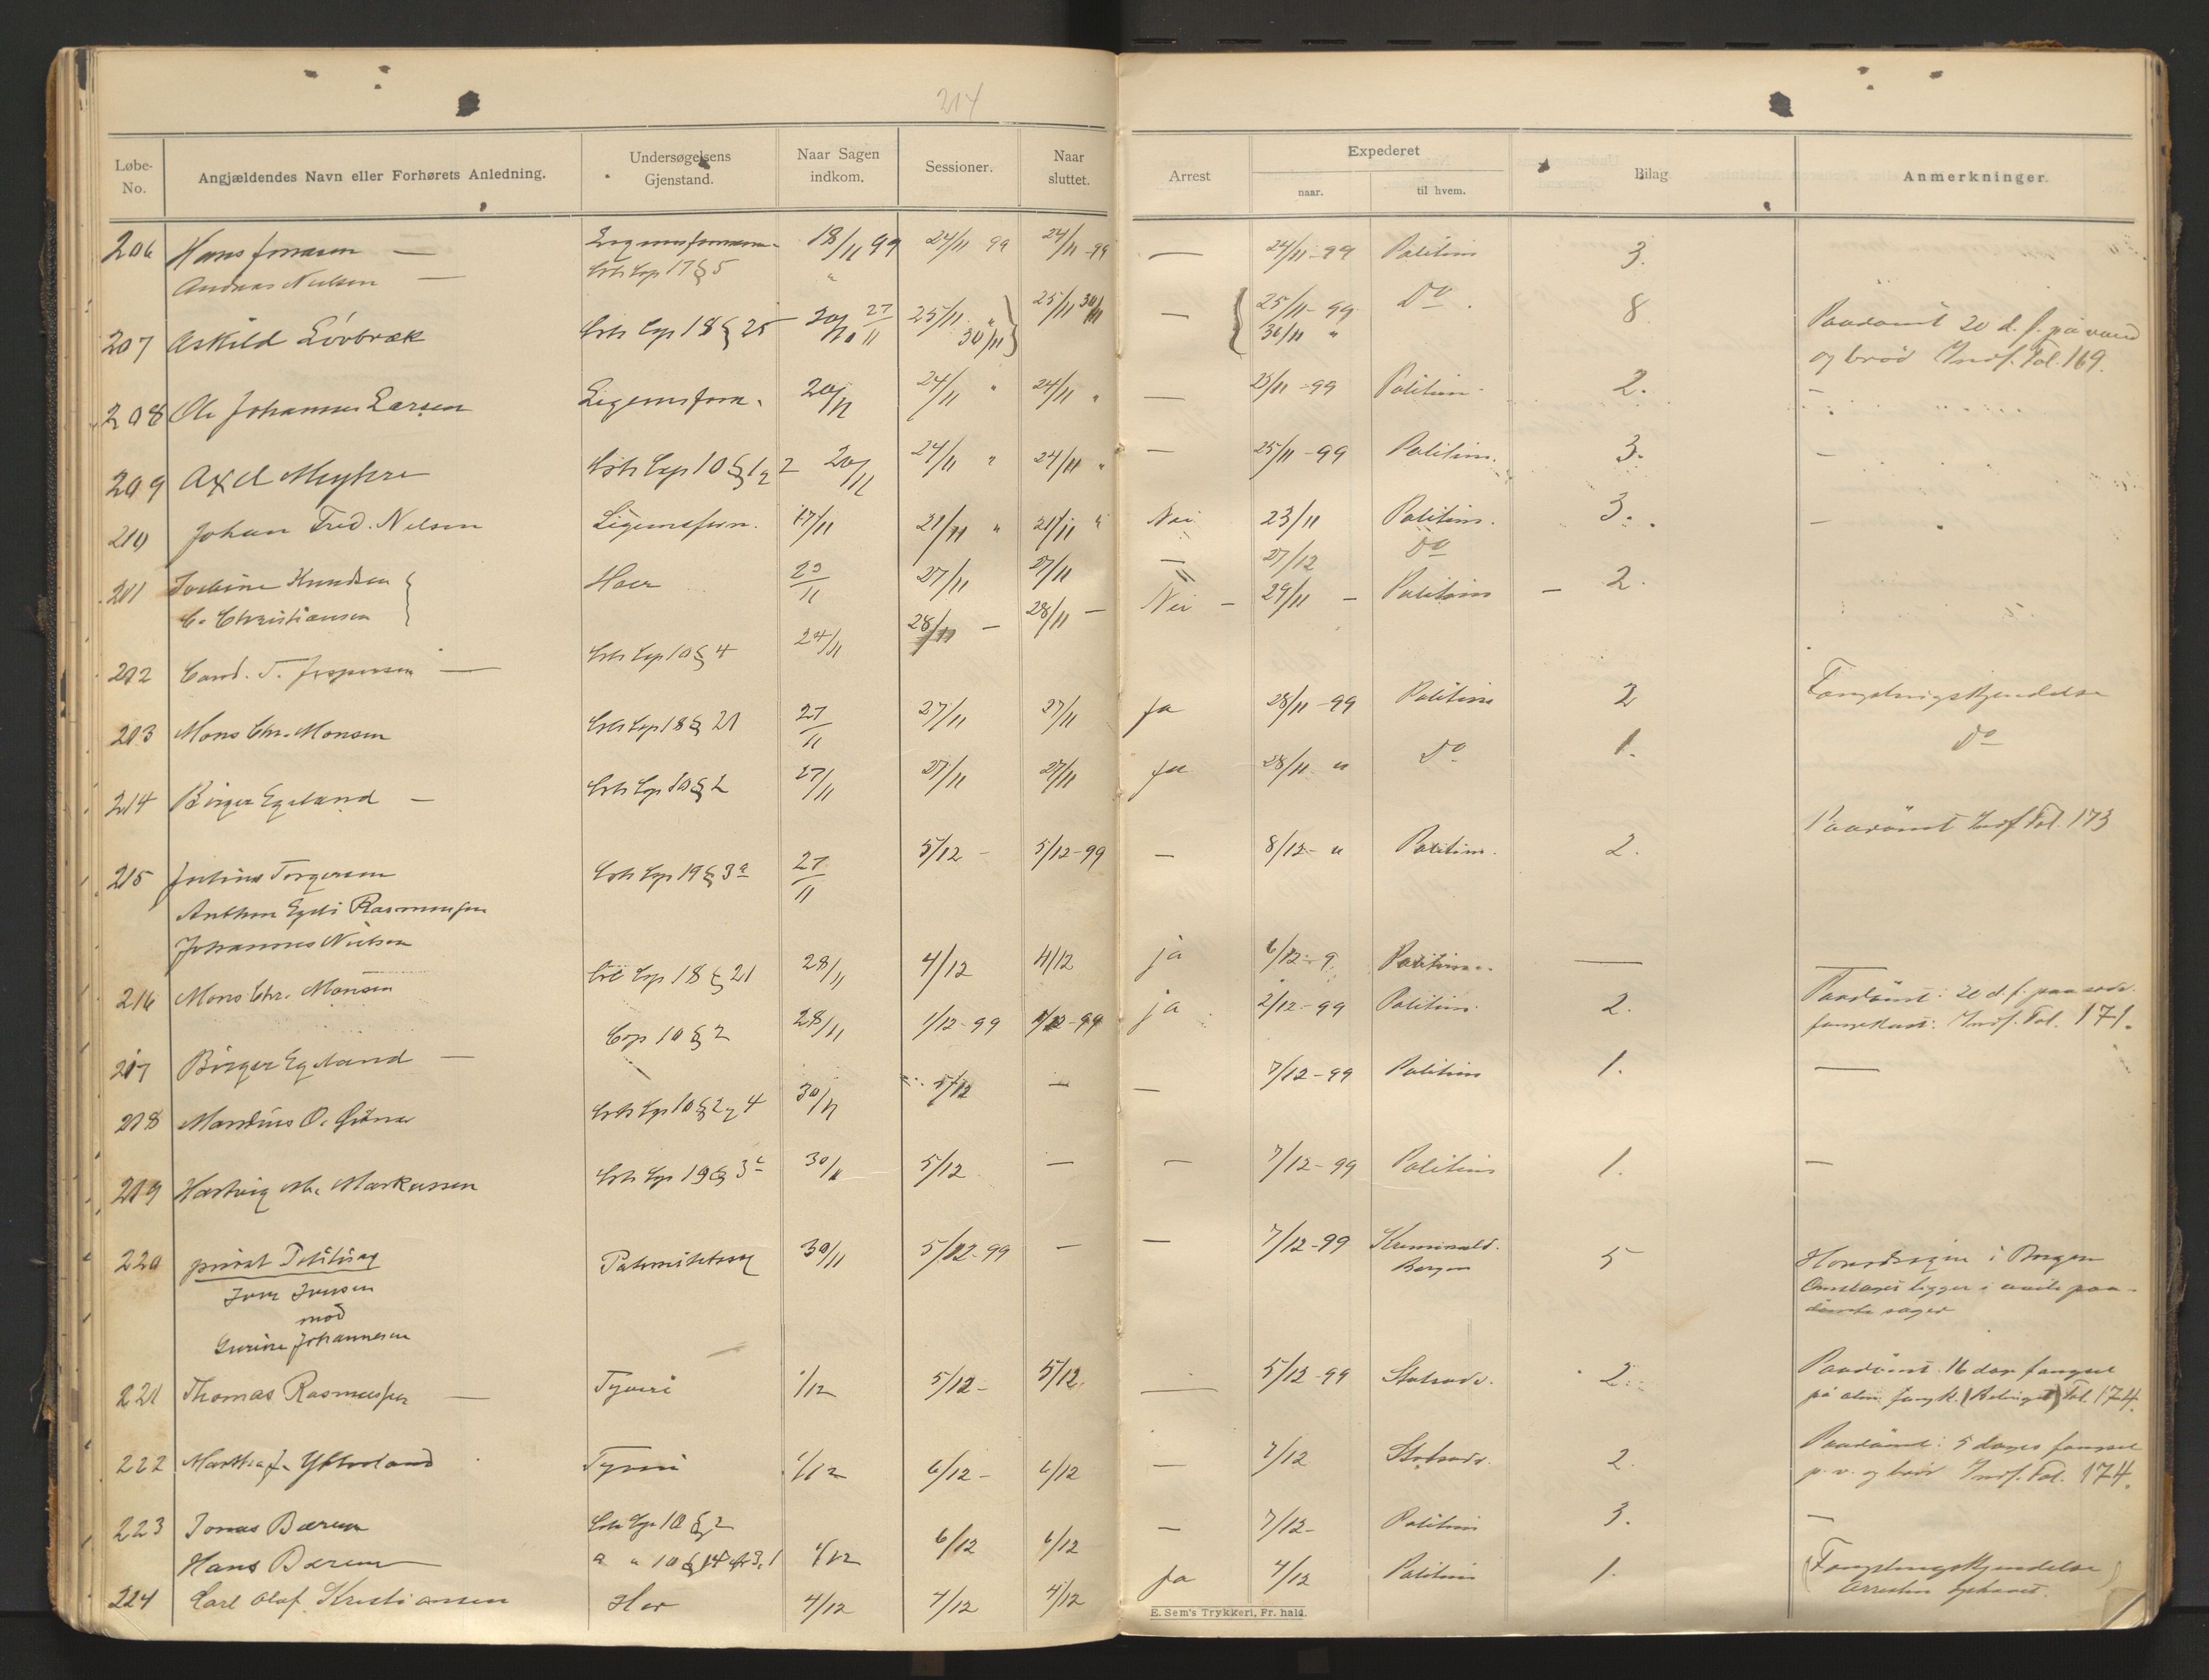 214
Løbe-No. Angjældendes Navn eller Forhørets Anledning. Undersøgelsens Gjenstand. Naar Sagen indkom. Sessioner. Naar sluttet. Arrest Expederet naar. til hvem. Bilag Anmerkninger.
206 Hans 18/11 99 24/11 99 24/11 -99 — 24/11 -99 Politim 3.
Andreas Nielsen — Crls Cap 17 § 5 "
207 Askild Lövbræk Crls Cap 18 § 25 27/11 25/11 " 30/11 25/11 30/11 — 25/11 -99 30/11 " Do. 8 Paadömt 20 d. f. på vand
og bröd Indf. Fol. 169.
208 Ole Johannes Larsen Legemsforn. 20/11 24/11 " 24/11 " — 25/11 -99 Politim 2. —
209 Axel Myhre Crls Cap 10 § 1 2 20/11 24/11 " 24/11 " — 25/11 -99 Politim. 3. —
210 Johan Fred. Nelsen Legemsforn. 17/11 21/11 " 21/11 " Nei 23/11 Politim. 3. —
211 Knudsen Hoer 23/11 27/11 27/11 — 27/12 Do
C. Christiansen
212 Cand. T. Jespersen — Crls Cap 10 § 4 24/11 28/11 — 28/11 — Nei — 29/11 — Politim — 2.
213 Mons Chr. Monsen Crls Cap 18 § 21 27/11 27/11 27/11 Ja 28/11 -99 Politim 2 Fængslingskjendelse
214 Birger Egeland — Crls Cap 10 § 2 27/11 27/11 27/11 Ja 28/11 " Do 1. Do
215 Julius Torgersen Crls Cap 19 § 3 a 27/11 5/12 — 5/12-99 — 8/12- " Politim. 2. Paadömt Indf Fol. 173
Anthon Rasmussen
Johannes Nielsen
216 Mons Chr. Monsen Crl Cap 18 § 21 28/11 4/12 4/12 ja 6/12-9 Politim. —
217 Birger Egeland — Cap 10 § 2 28/11 1/12-99 1/12-99 ja 2/12-99 Politim. 2. Paadömt: 20 d. f. paa sædv.
fangekost: Indf. Fol. 171.
218 Mandius O. Crls Cap 10 § 2 4 30/11 5/12 — — 7/12-99 Politim 1. —
219 Hartvig Markussen Crls Cap 19 § 3 c 30/11 5/12 — — 7/12-99 Politim 1. —
220 privat Politisag Paternitetssag 30/11 5/12-99 — — 7/12-99 Kriminald. Bergen 5 Hovedsagen i Bergen
Iver Iversen ligger i paa-
mod dömte sager
Gurine Johannesen
221 Thomas Rasmussen — Tyveri 1/12 5/12- 5/12. — 5/12-99 Statsadv. 2. Paadömt 16 dage fængsel
på alm. fangek. Fol. 174.
222 Martha J. Ytterland Tyveri 1/12 6/12- 6/12 — 7/12 Statsadv. 2. Paadömt: 5 dages fængsel
p. v. og bröd Indf. Fol. 174.
223 Jonas Bærum Crls Cap 10 § 2 — 7/12- Politim 3. —
Hans Bærum " " 10 § 14 1/12 6/12 6/12
224 Carl Olaf Kristiansen Hor 4/12 4/12 4/12 Ja 4/12 Politim 1. (Fængslingskjendelse
Arresten ophævet.)
E. Sem's Trykkeri, Fr. hald.